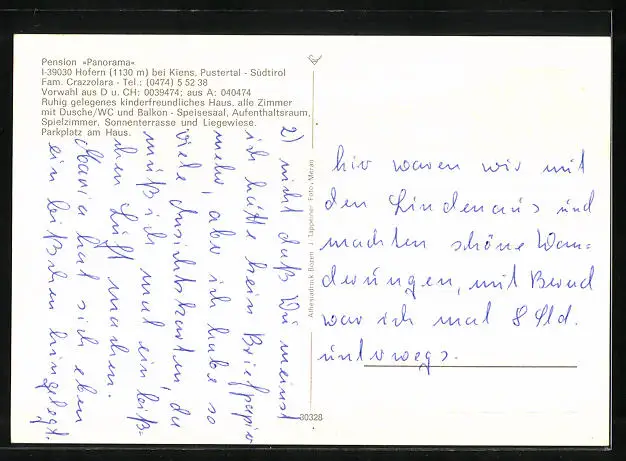 Pension »Panorama«
I-39030 Hofern (1130 m) bei Kiens, Pustertal - Südtirol
Fam. Crazzolara - Tel.: (0474) 5 52 38
Vorwahl aus D u. CH: 0039474; aus A: 040474
Ruhig gelegenes kinderfreundliches Haus, alle Zimmer
mit Dusche/WC und Balkon - Speisesaal, Aufenthaltsraum,
Spielzimmer, Sonnenterrasse und Liegewiese.
Parkplatz am Haus.
2) nicht daß Du meinst
ich hätte kein Briefpapier
mehr, aber ich habe so
viele Ansichtskarten, da
muß ich mal ein biß-
chen Luft machen.
Maria hat sich eben
ein bißchen hingelegt.
Athesiadruk Bozen J. Tappeiner Foto, Meran
30328
hier waren wir mit
den Lindenaus und
machten schöne Wan-
derungen, mit Bernd
war ich mal 8 Std.
unterwegs.